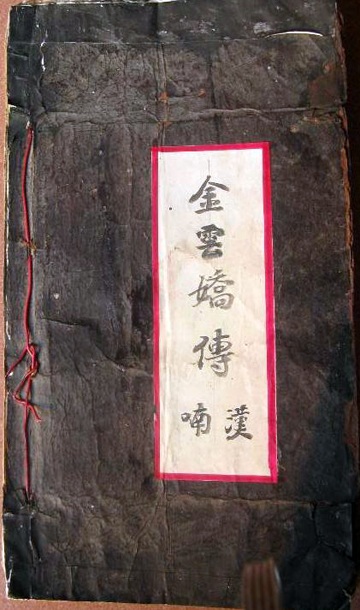 金雲嬌傳
漢喃